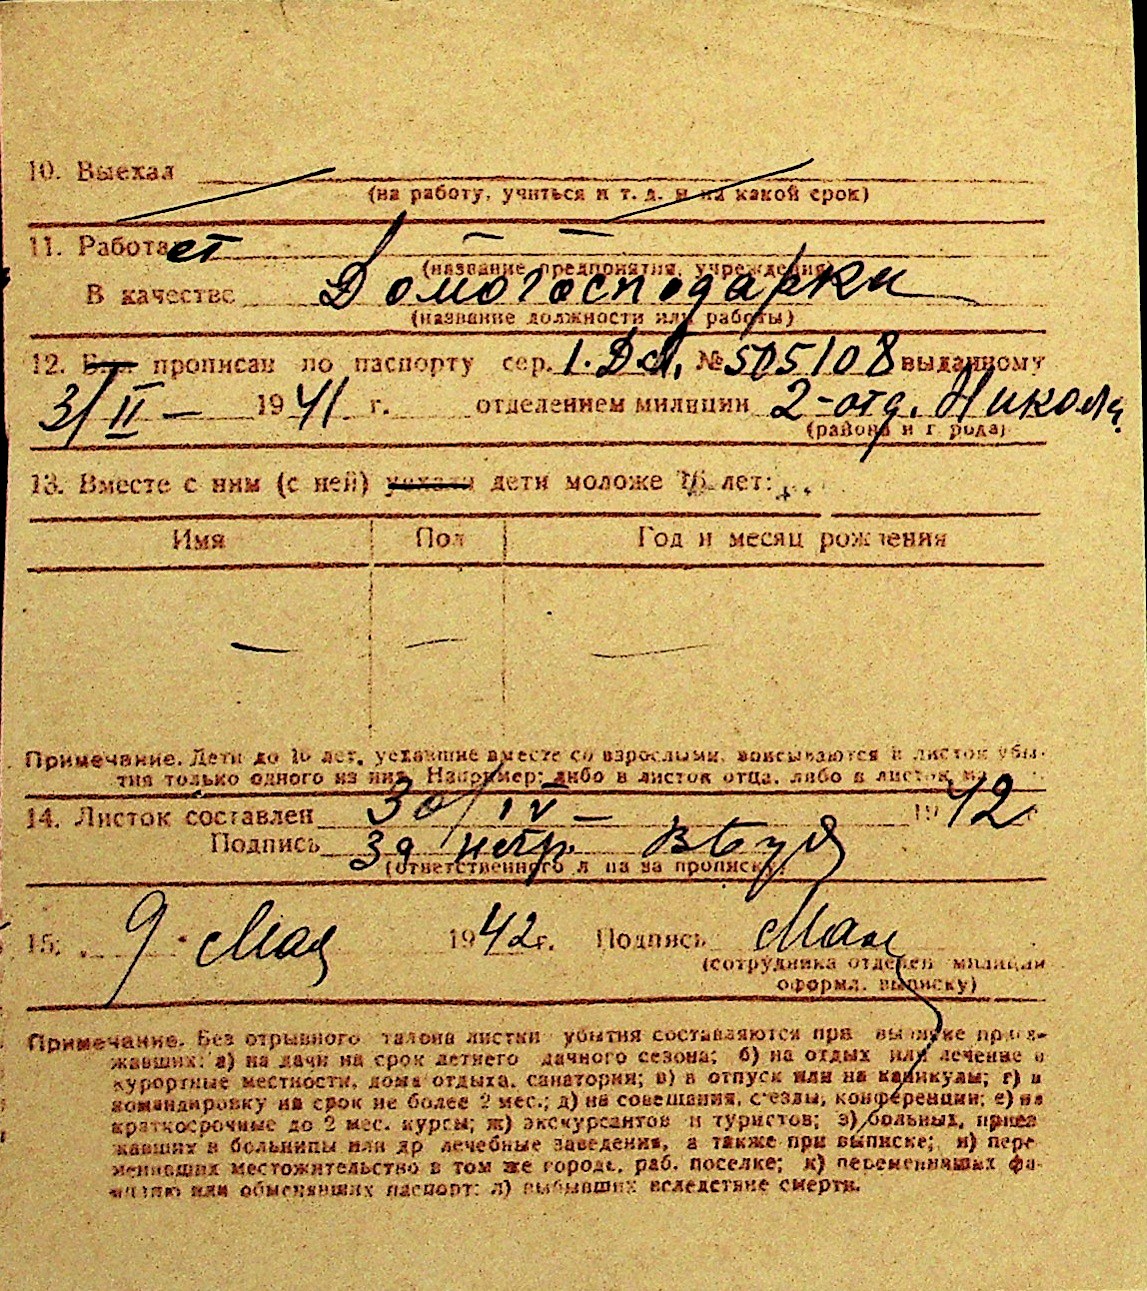 10. Выехал
(на работу, учиться и т. д. и на какой срок)
11. Работает
(название предприятия, учреждения)
В качестве Домогосподарки
(название должности или работы)
12. Был прописан по паспорту сер. № 505108 выданному
3/II – 1941 г. отделением милиции 2-отд. Никола
(района и города)
13. Вместе с ним (с ней) уехали дети моложе 16 лет:
Имя Пол Год и месяц рождения
Примечание. Дети до 16 лет, уехавшие вместе со взрослыми, вписываются в листок убы-
тия только одного из них. Например: либо в листок отца, либо в листок
14. Листок составлен 30/IV – 1942
Подпись
(ответственного лица за прописку)
15. 9 Мая 1942 г. Подпись
(сотрудника отделен милиции
оформл. выписку)
Примечание. Без отрывного талона листки убытия составляются при выписке приез-
жавших: а) на дачи на срок летнего дачного сезона; б) на отдых или лечение в
курортные местности, дома отдыха, санатории; в) в отпуск или на каникулы; г) в
командировку на срок не более 2 мес.; д) на совещания, съезды, конференции; е) на
краткосрочные до 2 мес. курсы; ж) экскурсантов и туристов; з) больных, приез
жавших в больницы или др лечебные заведения, а также при выписке; и) пере
менивших местожительство в том же городе, раб. поселке; к) переменивших фа-
милию или обменявших паспорт; л) выбывших вследствие смерти.